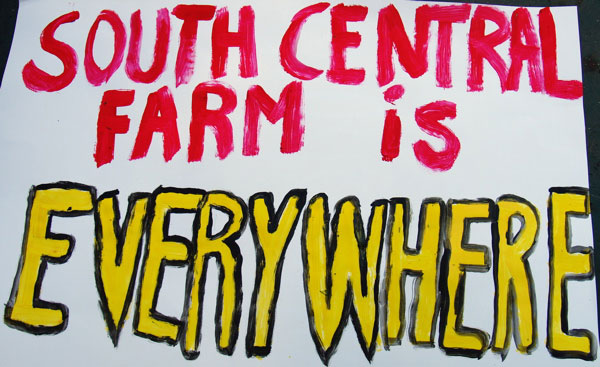 SOUTH CENTRAL
FARM is
EVERYWHERE